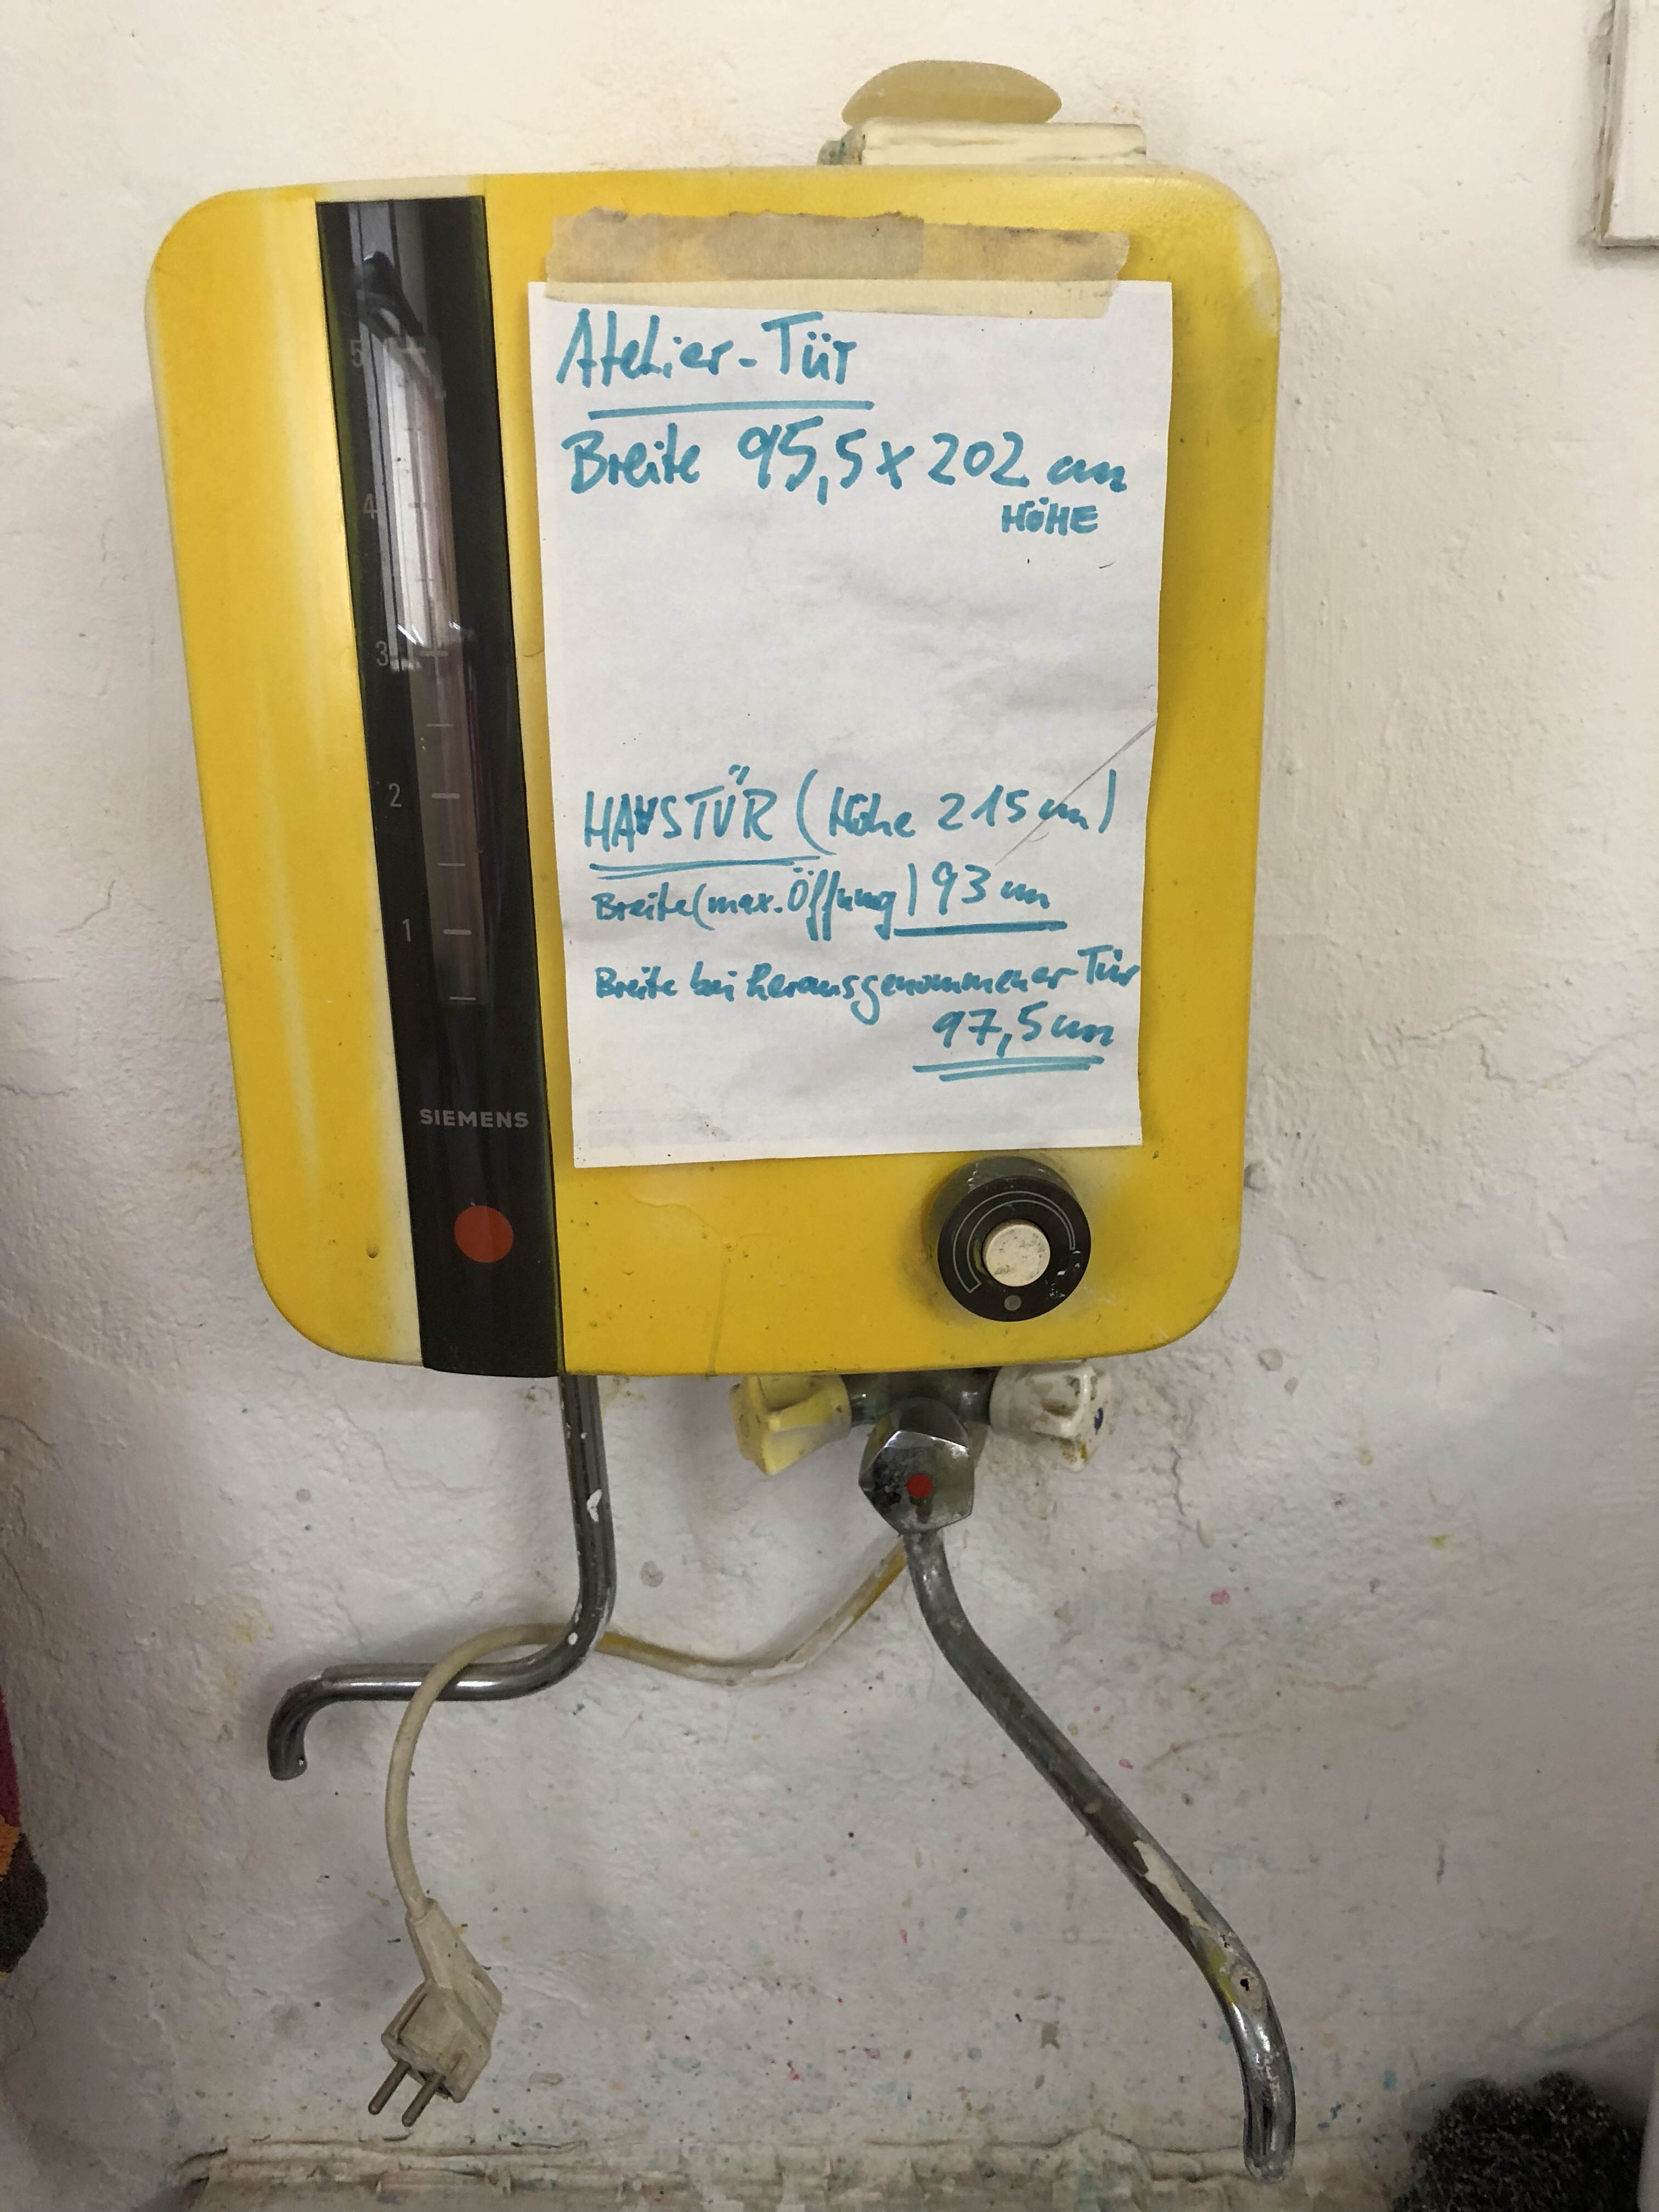 5
4
3
2
1
SIEMENS
Atelier-Tür
Breite 95,5 x 202 cm
HÖHE
HAUSTÜR (Höhe 215 cm)
Breite (max. Öffnung) 93 cm
Breite bei herausgenommener Tür
97,5 cm